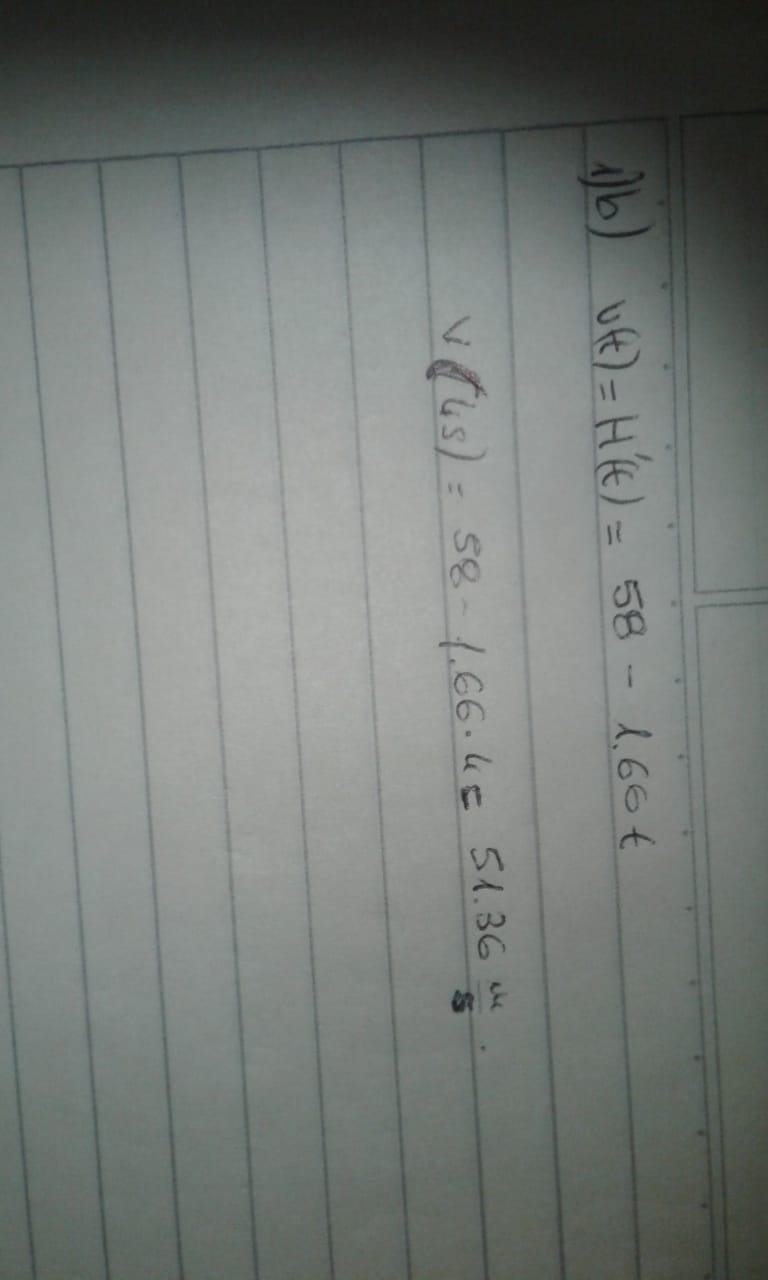 1)b) v(t) = H'(t) = 58 - 1.66 t
v(4s) = 58 - 1.66 · 4 = 51.36 m/s.